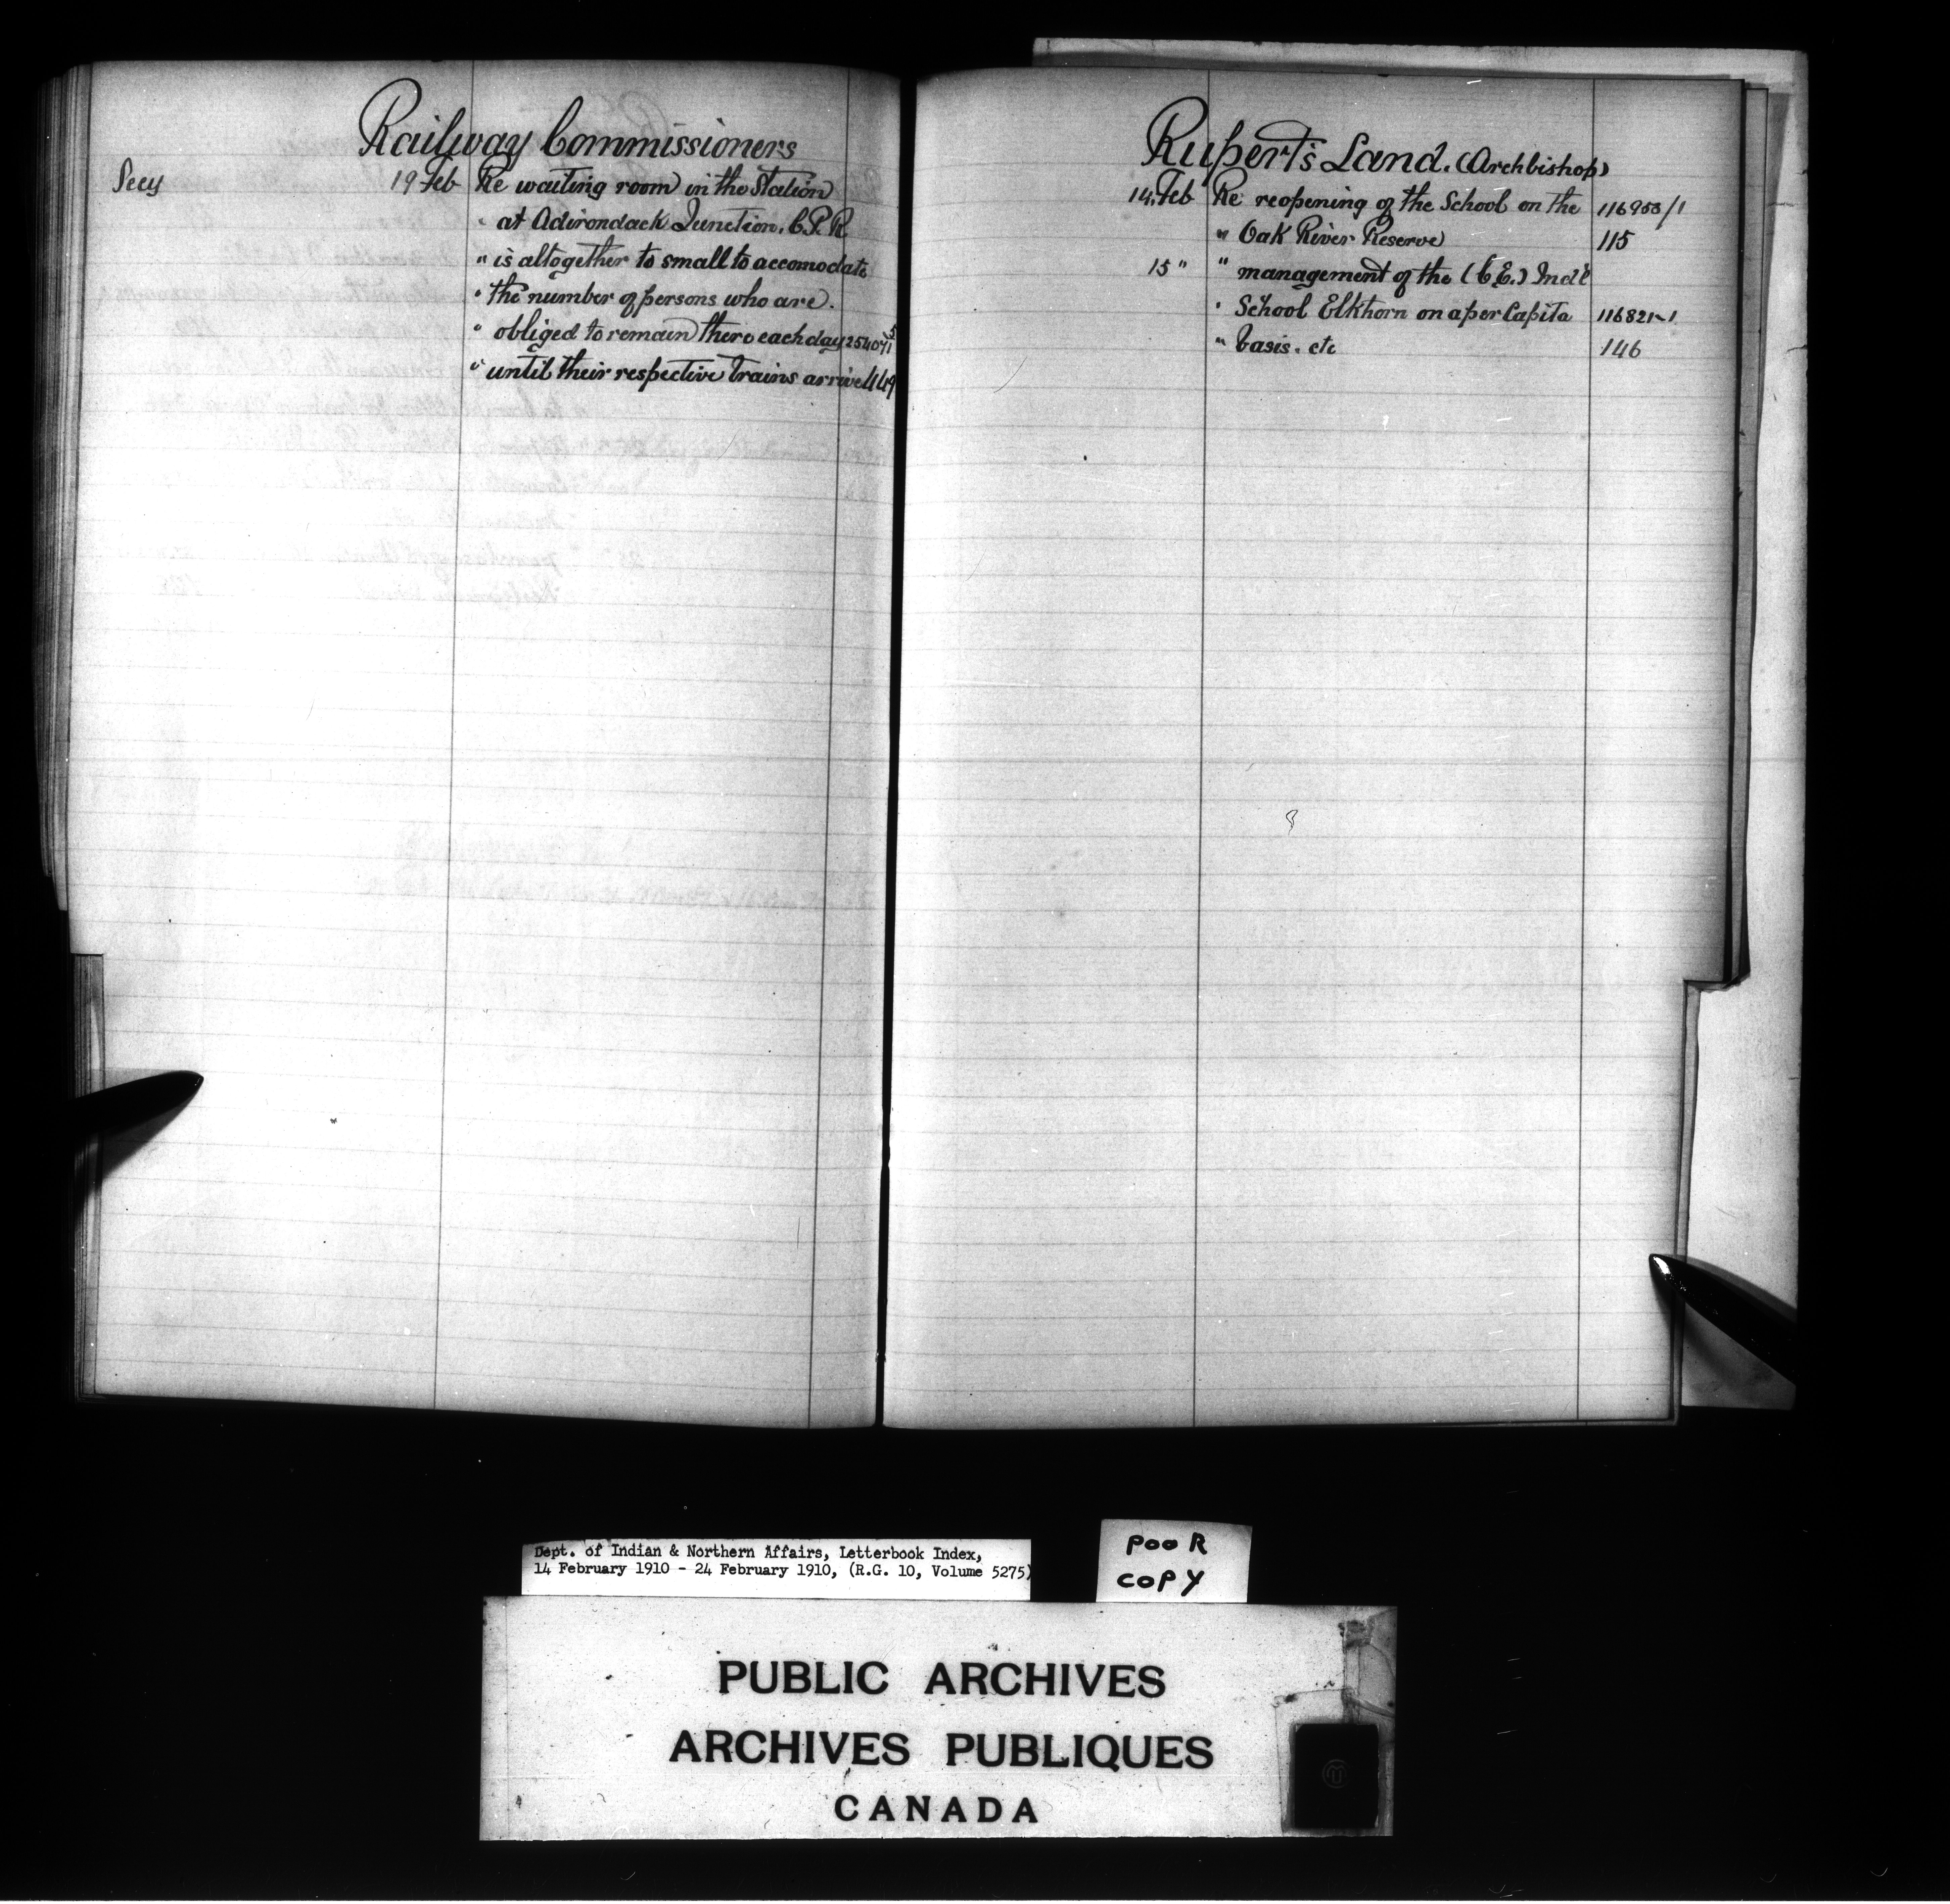 Railway Commissioners
Secy 19 Feb Re waiting room in the Station
" at Adirondack Junction. C.P.R
" is altogether to small to accomodate
" the number of persons who are.
" obliged to remain there each day
" until their respective trains arrive 449
Rupert's Land. (Archbishop)
14. Feb Re reopening of the School on the 116953/1
" Oak River Reserve 115
15 " " management of the (C.E.) Ind'l
" School Elkhorn on a per Capita 116821-1
" basis. etc 146
Dept. of Indian & Northern Affairs, Letterbook Index,
14 February 1910 - 24 February 1910, (R.G. 10, Volume 5275)
POOR
COPY
PUBLIC ARCHIVES
ARCHIVES PUBLIQUES
CANADA